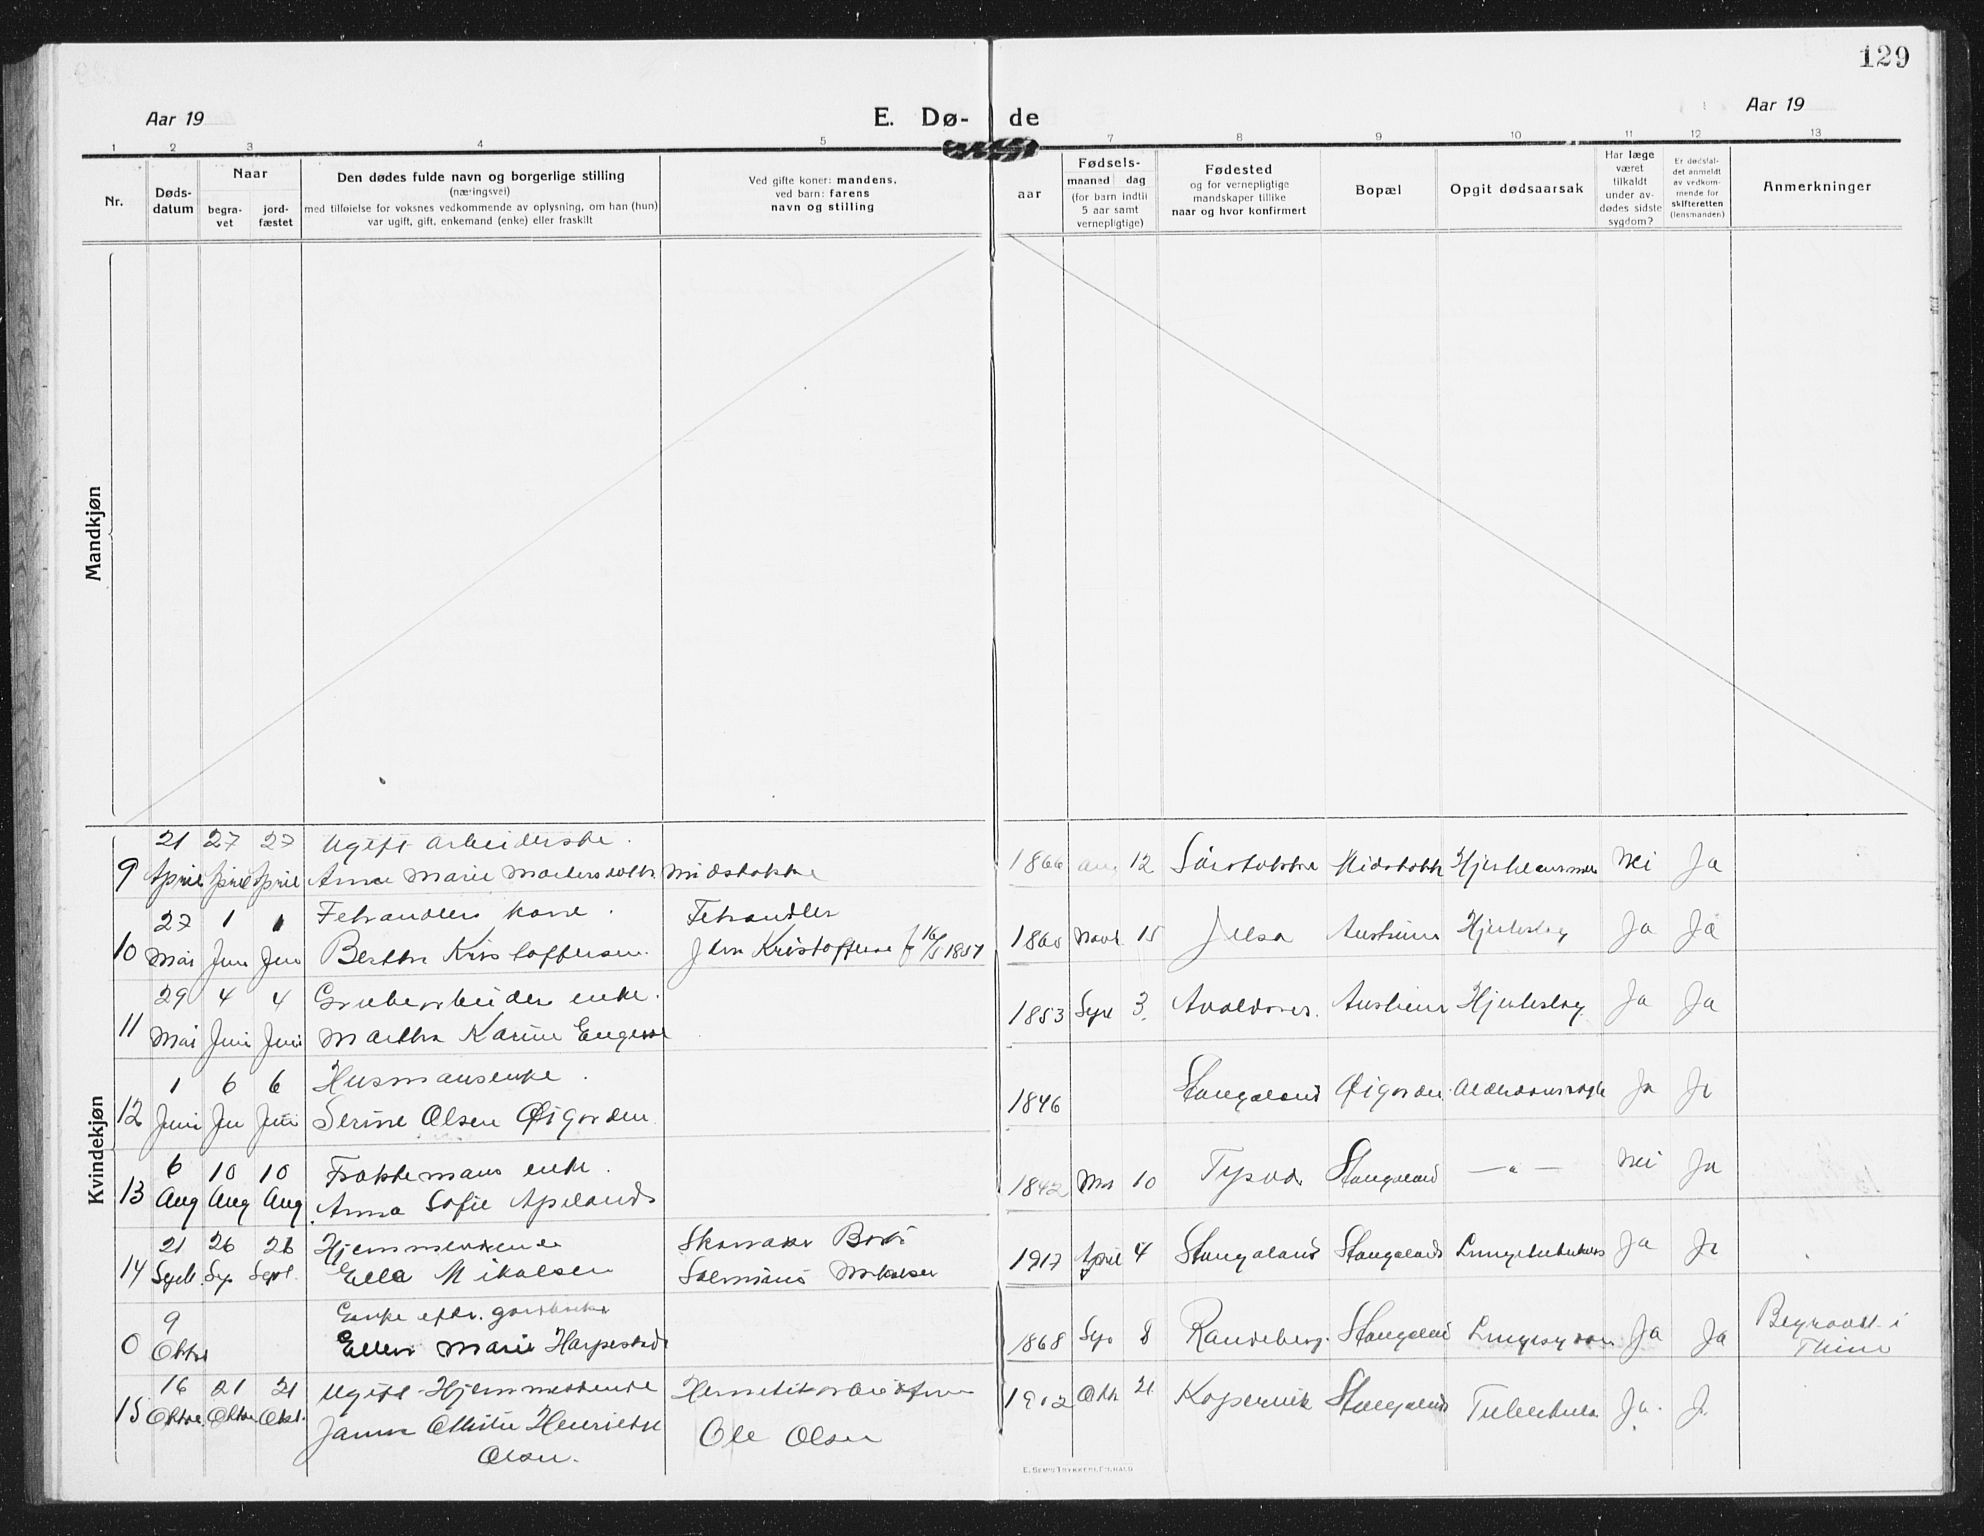 129
Aar 19
E. Dø- de
Aar 19
1 2 3 4 5 7 8 9 10 11 12 13
Nr.
Døds-
datum
Naar
begra-
vet
jord-
fæstet
Den dødes fulde navn og borgerlige stilling
(næringsvei)
med tilføielse for voksnes vedkommende av oplysning, om han (hun)
var ugift, gift, enkemand (enke) eller fraskilt
Ved gifte koner: mandens,
ved barn: farens
navn og stilling
aar
Fødsels-
maaned dag
(for barn indtil
5 aar samt
vernepligtige)
Fødested
og for vernepligtige
mandskaper tillike
naar og hvor konfirmert
Bopæl
Opgit dødsaarsak
Har læge
været
tilkaldt
under av-
dødes sidste
sygdom?
Er dødsfal-
det anmeldt
av vedkom-
mende for
skifteretten
(lensmanden)
Anmerkninger
Mandkjøn
Kvindekjøn
21 27 27 Ugift arbeiderske.
9 April April April Anna Marie Midstokke 1866 Aug 12 Nei Ja
27 1 1 Fehandlers kone. Fehandler
10 Mai Juni Juni Bertha Kristoffersen. John Kristoffersen f 16/5 1857 1860 Novb 15 Jelsa Austheim Hjerteslag Ja Ja
29 4 4 Grubearbeider enke.
11 Mai Juni Juni Martha Karine 1853 Sept 3. Avaldsnes. Austheim Hjerteslag Ja Ja
1 6 6 Husmansenke.
12 Juni Jun Juni Serine Olsen Øigarden 1846 Stangeland Øigarden Ja Ja
6 10 10 enke.
13 Aug Aug Aug Anna Sofie Apeland 1842 Mrs 10 Tysvær Stangeland —"— Nei Ja
21 26 26 Hjemmeværende
14 Septb. Sep Sept. Ella Mikalsen Mikalsen 1917 April 4 Stangeland Stangeland Lungetuberkulos Ja Ja
9 Enke eftr. gardbruker
0 Oktbr Ellen Marie Harpestad 1868 Sep 8 Randeberg. Stangeland Lungesygdom Ja Ja Begravet i
Time
16 21 21 Ugift Hjemmeværende
15 Oktbr. Oktbr Okt. Henriette 1902 Oktb 21 Kopervik Stangeland Tuberkulos Ja. Ja
Olsen. Ole Olsen
E. SEM'S TRYKKERI, FR.HALD